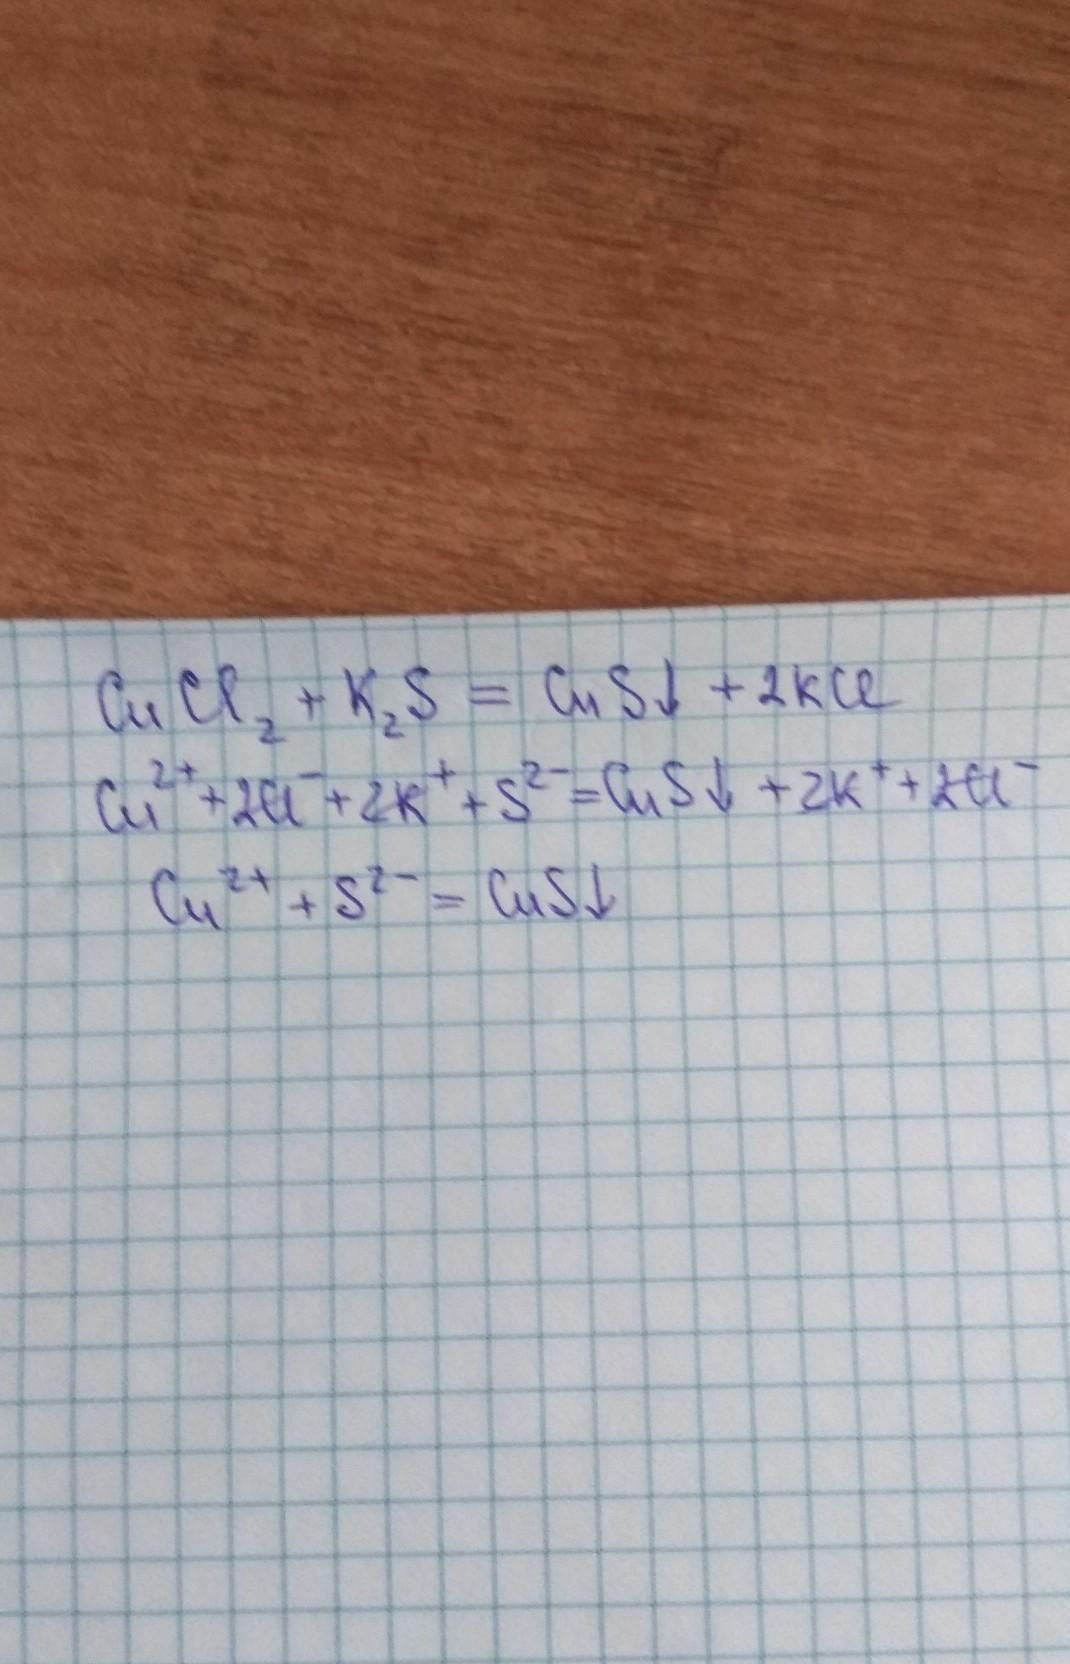 CuCl₂ + K₂S = CuS↓ + 2KCl
Cu²⁺ + 2Cl⁻ + 2K⁺ + S²⁻ = CuS↓ + 2K⁺ + 2Cl⁻
Cu²⁺ + S²⁻ = CuS↓